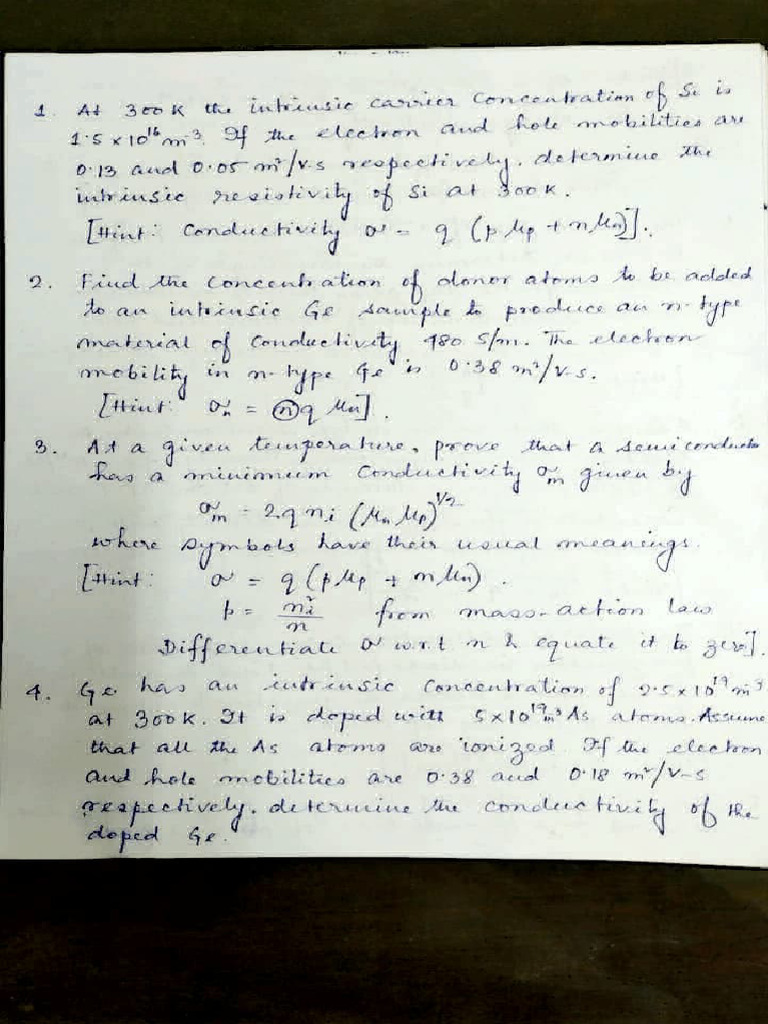 1. At 300K the intrinsic carrier concentration of Si is
1.5 x 10¹⁶ m⁻³. If the electron and hole mobilities are
0.13 and 0.05 m²/V-s respectively. determine the
intrinsic resistivity of Si at 300K.
[Hint: Conductivity σ = q (pμp + nμn)].
2. Find the concentration of donor atoms to be added
to an intrinsic Ge sample to produce an n-type
material of conductivity 480 S/m. The electron
mobility in n-type Ge is 0.38 m²/V-s.
[Hint: σn = nqμn].
3. At a given temperature, prove that a semiconductor
has a minimum conductivity σm given by
σm = 2qni (μn μp)^1/2
where symbols have their usual meanings.
[Hint: σ = q (pμp + nμn).
p = ni²/n from mass-action law
Differentiate σ w.r.t n & equate it to zero].
4. Ge has an intrinsic concentration of 2.5 x 10¹⁹ m⁻³
at 300K. It is doped with 5 x 10¹⁹ m⁻³ As atoms. Assume
that all the As atoms are ionized. If the electron
and hole mobilities are 0.38 and 0.18 m²/V-s
respectively. determine the conductivity of the
doped Ge.